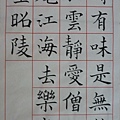 有味是無
雲靜愛僧
江海去樂
昭陵